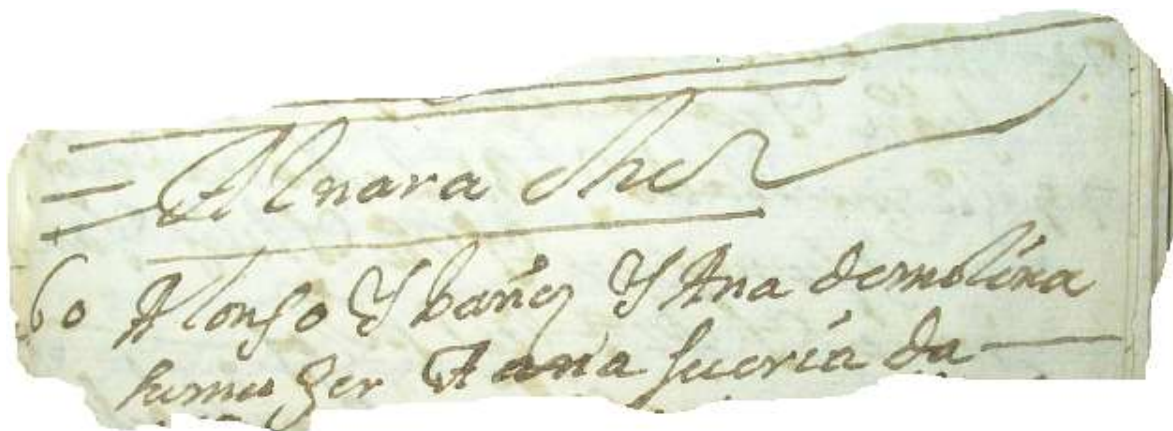 Alnarache
60 Alonso Ybañez Y Ana demolina
sumuger Y ana sucria da